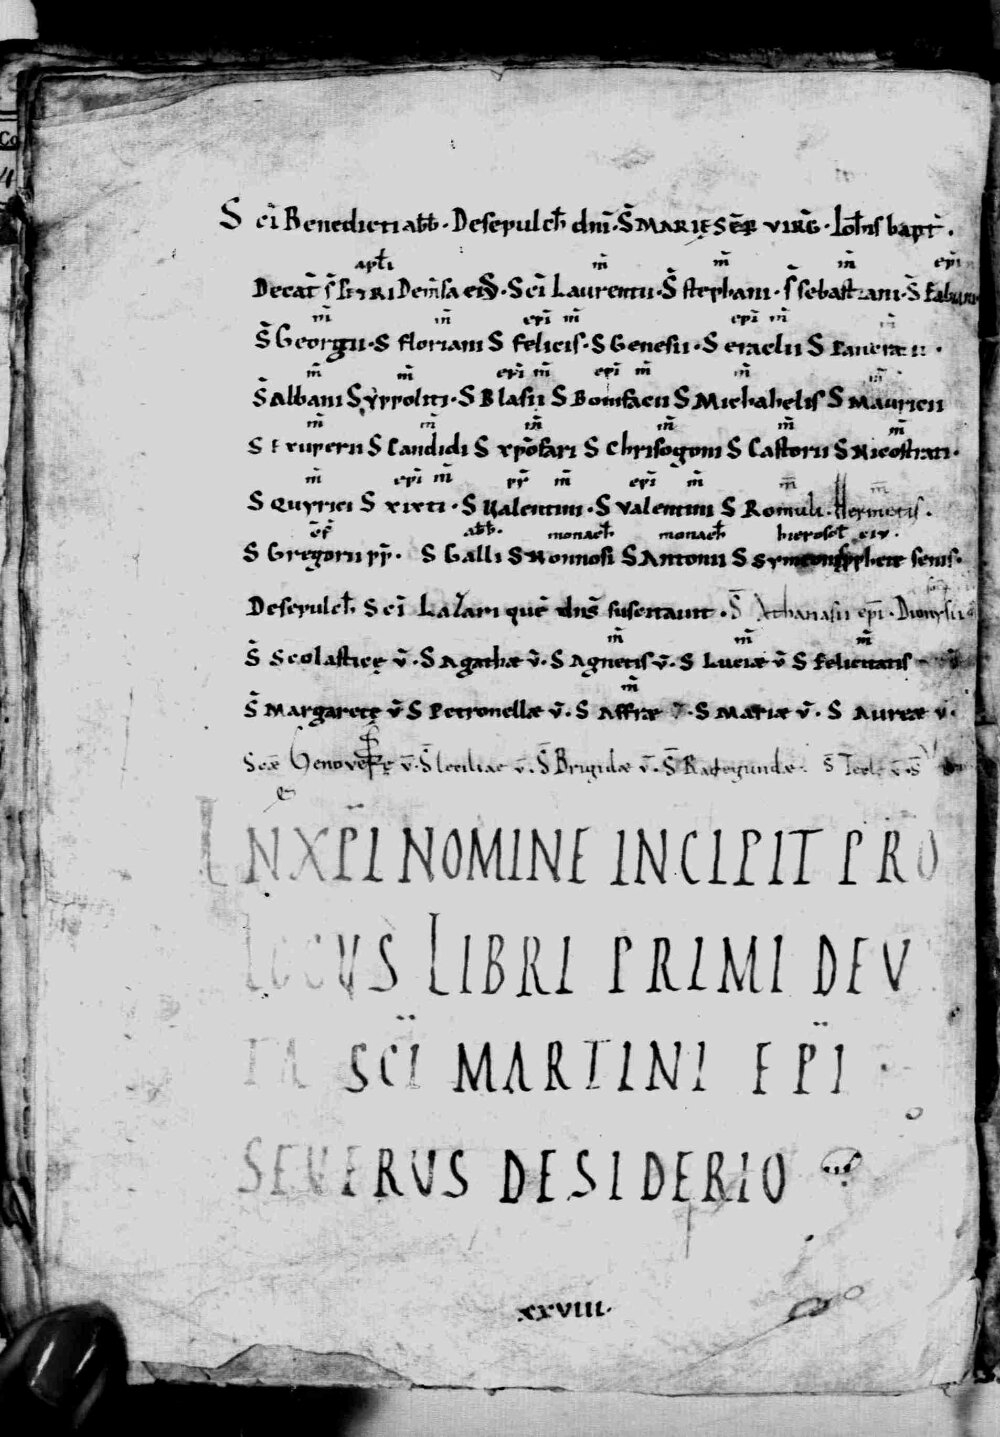 Scī Benedicti abb̄ · De sepulch̄ dnī · S̄ MARIĘ SEP̄ VIRḠ · Ioh̄is bapt̄ ·
aplī m̄ m̄ m̄ epī
De cat̄ s̄ PETRI De m̄sa eiđ · Scī Laurentii · S̄ stephani · s̄ sebastiani · S̄ Fabiani
m̄ m̄ epī m̄ epī m̄ m̄
S̄ Georgii · S floriani S felicis · S Genesii · S eraclii S Pancratii ·
m̄ m̄ epī m̄ epī m̄ m̄ m̄
S̄ Albani S yppoliti · S Blasii S Bonifacii S Michahelis S Mauricii
m̄ m̄ m̄ m̄ m̄ m̄
S Exuperii S Candidi S xp̄ofari S Chrisogoni S Castorii S Nicostrati ·
m̄ epī m̄ pp̄ m̄ epī m̄ m̄ m̄
S Quyrici S xixti · S Kalentini · S Valentini S Romuli · Hermetis ·
ep̄ abb̄ · monach̄ monach̄ hierosol̄ civ ·
S Gregorii pp̄ · S Galli S Nonnosi S Antonii S Symeonis senis ·
De sepulch̄ Scī Lazari quē dns̄ suscitavit · S̄ Athanasii epī · Dionysii
m̄ m̄ m̄
S̄ Scolasticę v̄ · S Agathæ v̄ · S Agnetis v̄ · S Luciæ v̄ S Felicitatis
m̄
S̄ Margaretę v̄ S Petronellæ v̄ · S Affræ v̄ · S Mariæ v̄ · S Aureæ v ·
Scæ Genovefę v̄ · S̄ Ceciliae v̄ · S̄ Brigidæ v̄ · S̄ Radegundæ · S̄ Tecle v̄ · S̄
IN XP̄I NOMINE INCIPIT PRO
LOGUS LIBRI PRIMI DE V
ITA SCĪ MARTINI EPĪ
SEVERUS DESIDERIO
xxviii ·